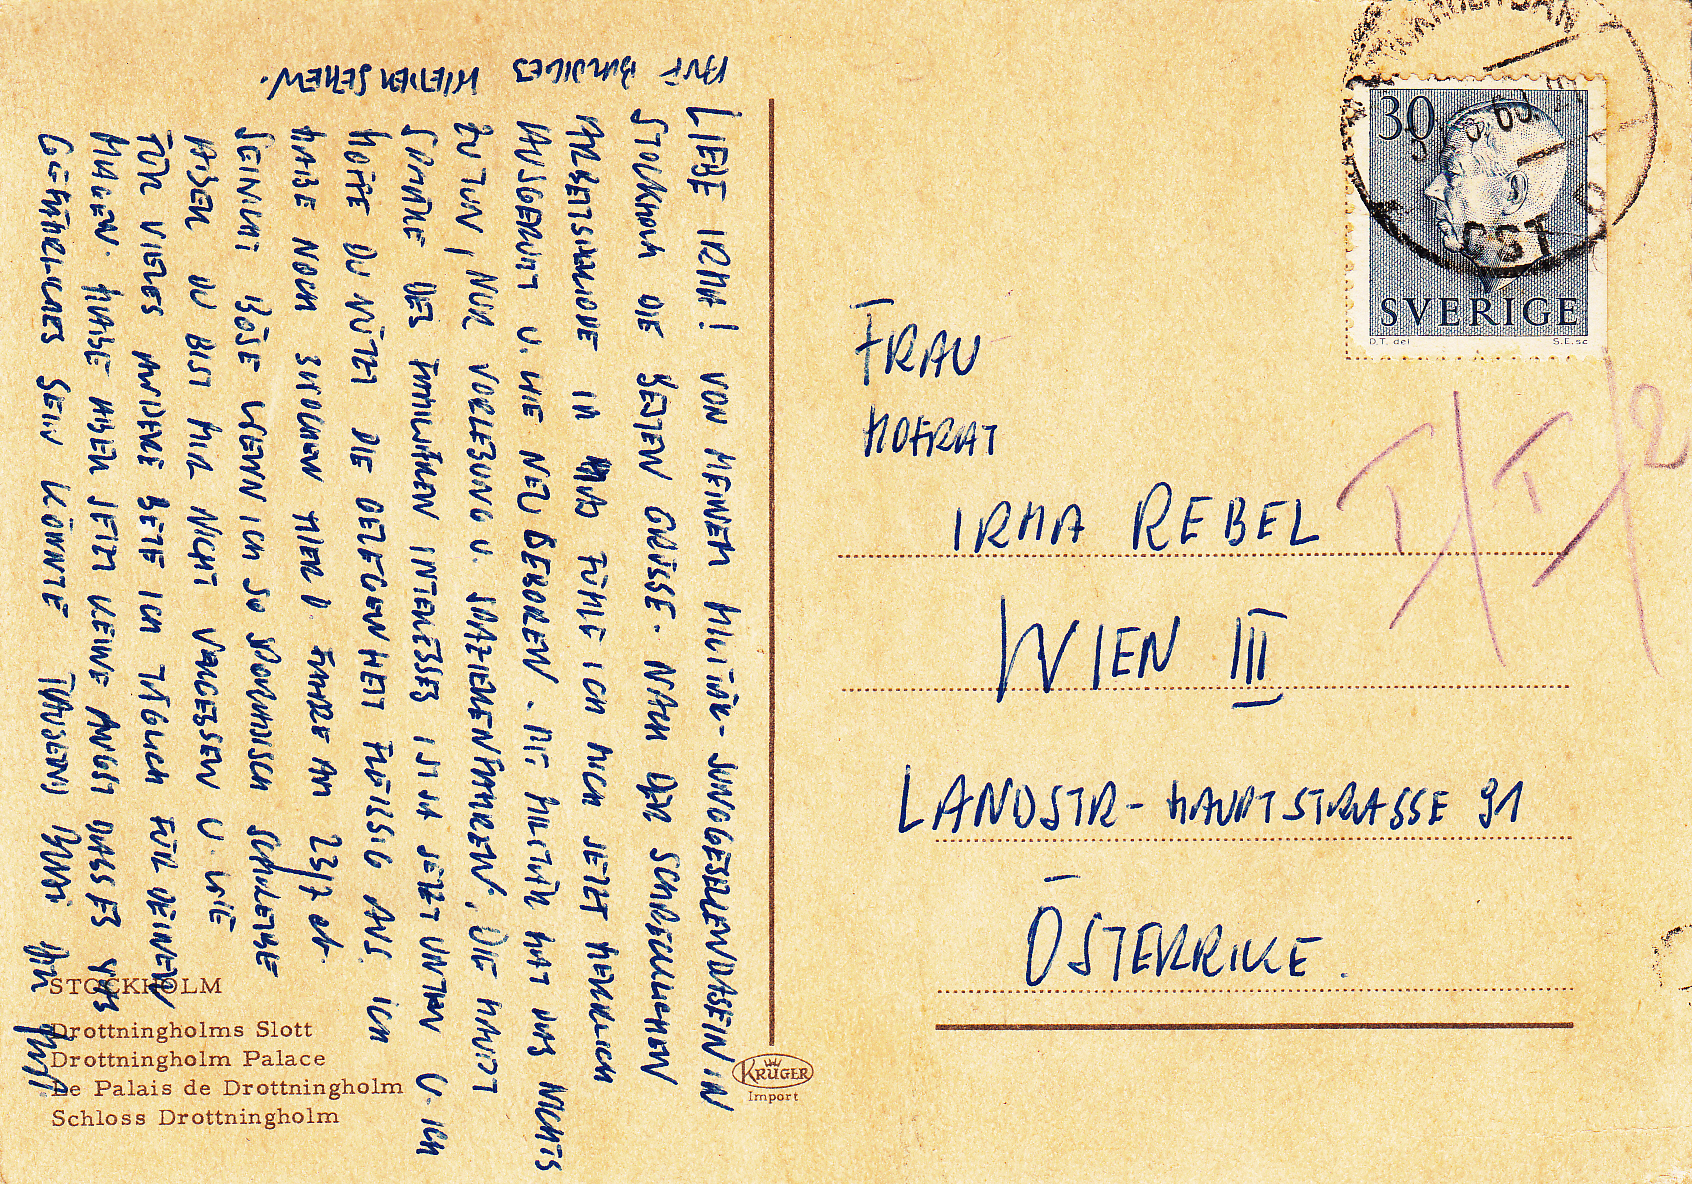 LIEBE IRMA! VON MEINEM MILITÄR-JUNGGESELLENDASEIN IN
STOCKHOLM DIE BESTEN GRÜSSE. NACH DER SCHRECKLICHEN
ARBEITSPERIODE IN FÜHLE ICH MICH JETZT HERRLICH
AUSGERUHT U. WIE NEU GEBOREN. MIT MILITÄR HAT DAS NICHTS
ZU TUN, NUR VORLESUNG U. SPAZIERENFAHREN. DIE HAUPT
SPHÄRE DES FAMILIÄREN INTERESSES IST JA JETZT UNTEN U. ICH
HOFFE DU NÜTZT DIE GELEGENHEIT FLEISSIG AUS. ICH
HABE NOCH WOCHEN HIER U. FAHRE AM 23/7 AB.
SEI NICHT BÖSE WENN ICH SO SPORADISCH SCHREIBE
ABER DU BIST MIR NICHT VERGESSEN U. WIE
FÜR VIELES ANDERE BETE ICH TÄGLICH FÜR DEINEN
MAGEN. HABE ABER JETZT KEINE ANGST DASS ES WAS
GEFÄHRLICHES SEIN KÖNNTE. TAUSEND BUSSI
AUF BALDIGES WIEDERSEHEN.
STOCKHOLM
Drottningholms Slott
Drottningholm Palace
Le Palais de Drottningholm
Schloss Drottningholm
KRÜGER
Import
30
SVERIGE
D.T. del
S.E. sc
FRAU
HOFRAT
IRMA REBEL
WIEN III
LANDSTR-HAUPTSTRASSE 91
ÖSTERRIKE.